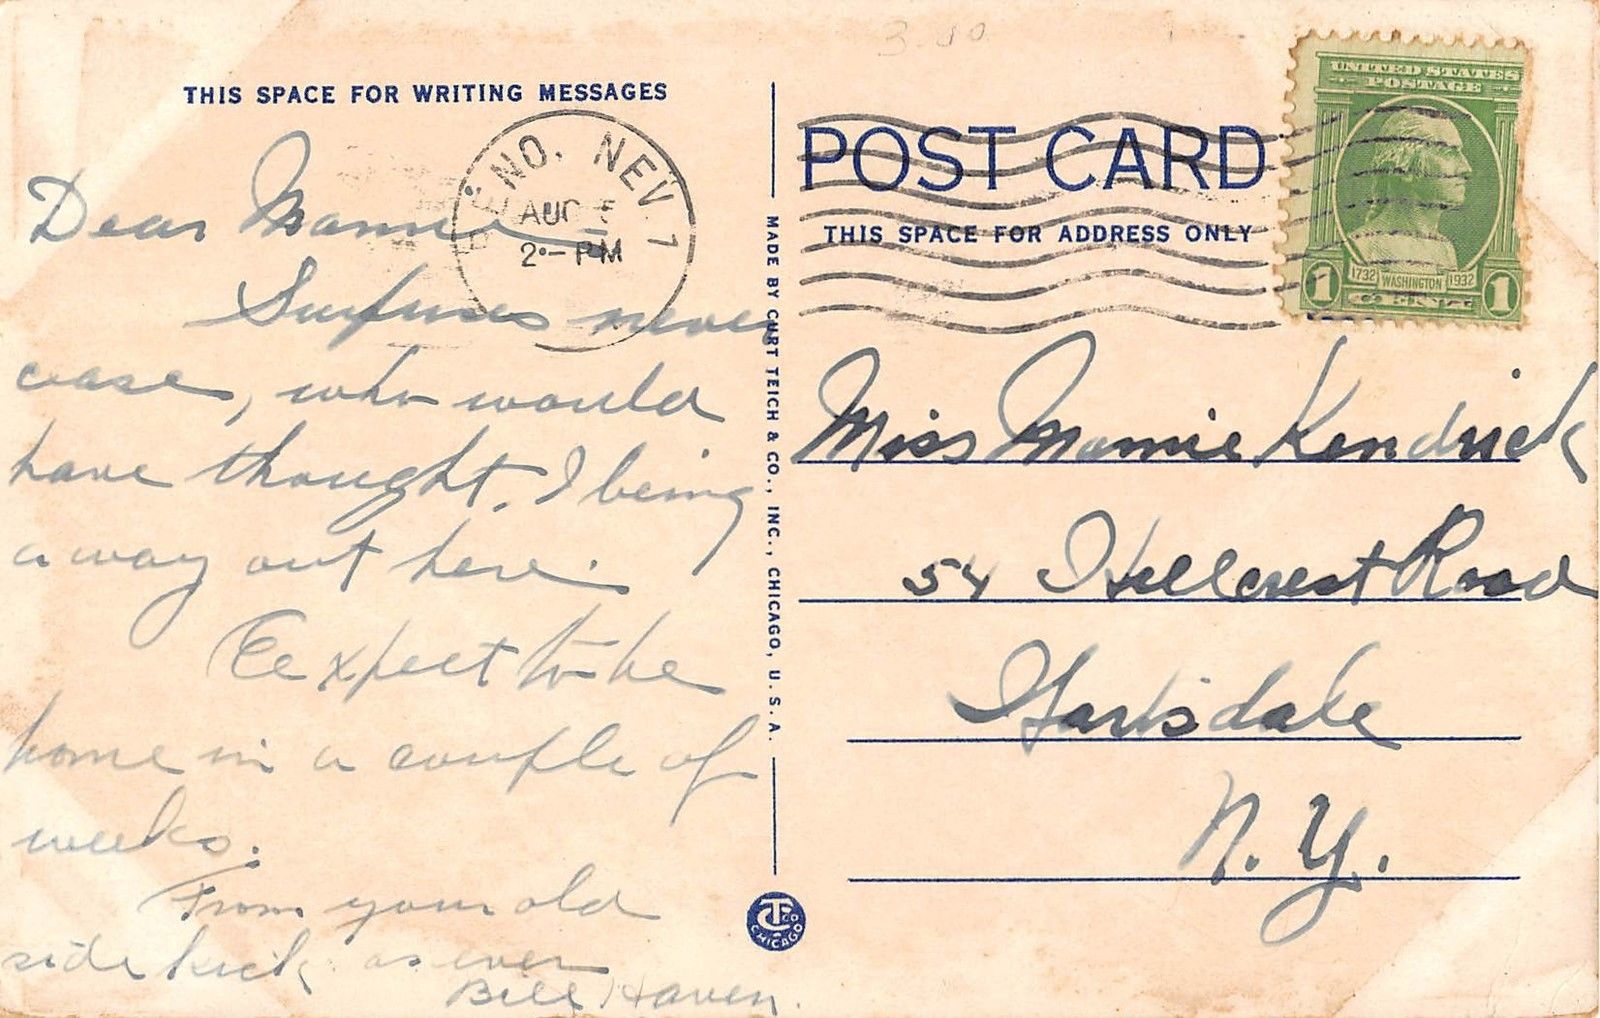 3.00
THIS SPACE FOR WRITING MESSAGES
RENO. NEV. 1
AUG 5
2 - PM
POST CARD
THIS SPACE FOR ADDRESS ONLY
UNITED STATES
POSTAGE
1732 WASHINGTON 1932
1 1
MADE BY CURT TEICH & CO., INC., CHICAGO, U.S.A.
Dear Mamie
Surprises never
cease, who would
have thought, I being
away out here.
Expect to be
home in a couple of
weeks.
From your old
side kick as ever
Bill Haven.
Miss Mamie Kendrick
54 Hillcrest Road
Hartsdale
N. Y.
CT CO
CHICAGO